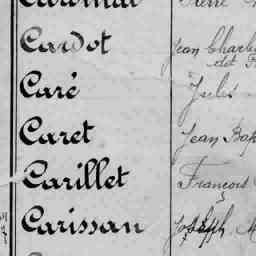 Cardinal Pierre
Cardot Jean Charles
dit
Caré Jules
Caret Jean Bap
Carillet François
Carissan Joseph M